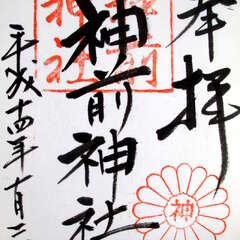 奉拝
神前神社
平成十四年十月二
神